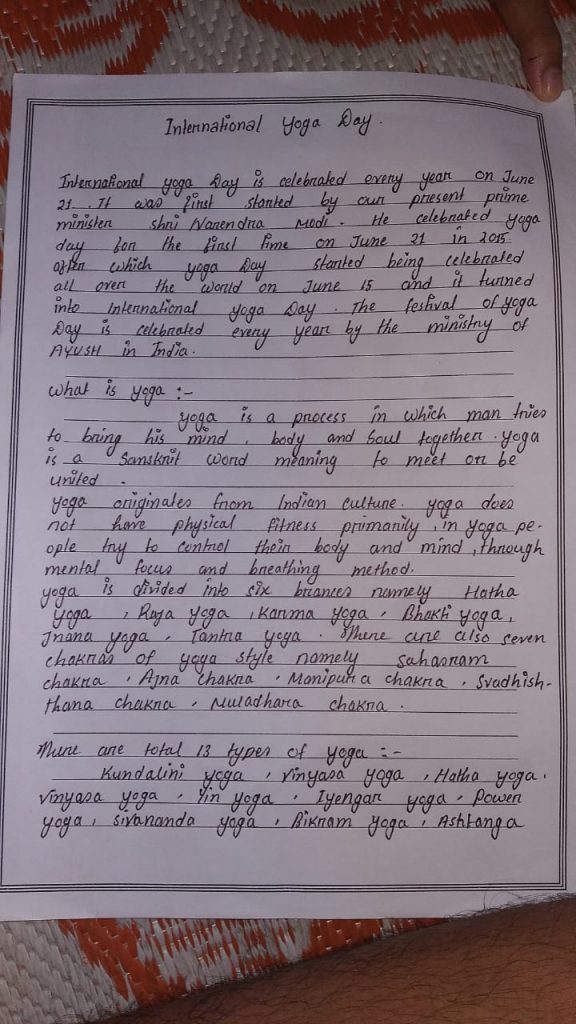 International Yoga Day.
International yoga Day is celebrated every year on June
21. It was first started by our present prime
minister shri Narendra Modi. He celebrated yoga
day for the first time on June 21 in 2015.
after which yoga Day started being celebrated
all over the world on June 15 and it turned
into International yoga Day. The festival of yoga
Day is celebrated every year by the ministry of
AYUSH in India.
What is yoga :-
yoga is a process in which man tries
to bring his mind, body and soul together. yoga
is a Sanskrit word meaning to meet or be
united.
yoga originates from Indian culture. yoga does
not have physical fitness primarily, in yoga pe-
ople try to control their body and mind, through
mental focus and breathing method.
yoga is divided into six brances namely Hatha
yoga, Raja yoga, karma yoga, Bhakti yoga,
Jnana yoga, Tantra yoga. There are also seven
chakras of yoga style namely sahasram
chakra, Ajna chakra, Manipura chakra, Svadhish-
thana chakra, Muladhara chakra.
There are total 13 types of yoga :-
Kundalini yoga, vinyasa yoga, Hatha yoga.
vinyasa yoga, Yin yoga, Iyengar yoga, Power
yoga, sivananda yoga, Bikram yoga, Ashtanga